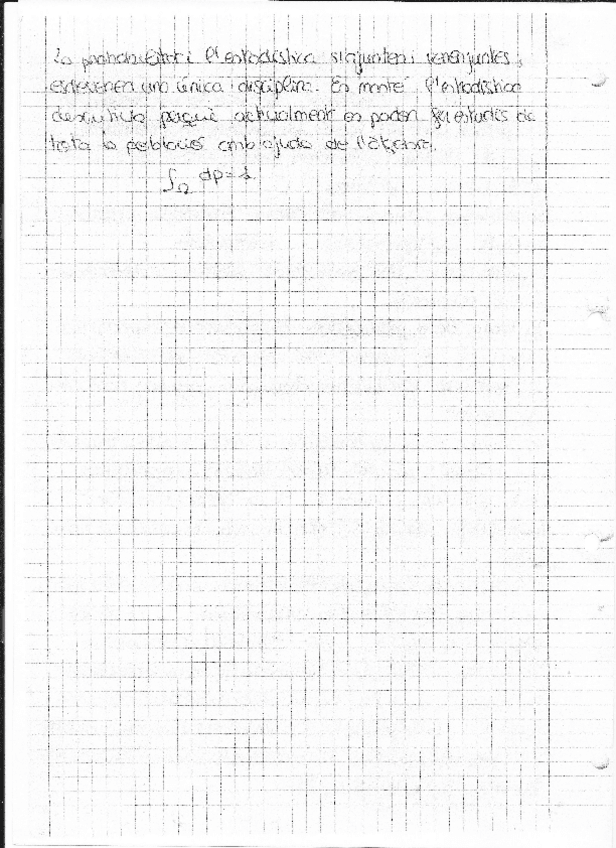 La probabilitat i l'estadística s'ajunten i venen juntes,
esdevenen una única disciplina. Es manté l'estadística
descriptiva perquè actualment es poden fer estudis de
tota la població amb ajuda de l'
∫_Ω dp = 1